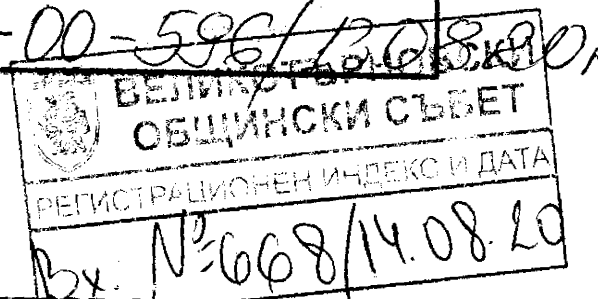 -00-596/12.08.20г
ВЕЛИКОТЪРНОВСКИ
ОБЩИНСКИ СЪВЕТ
РЕГИСТРАЦИОНЕН ИНДЕКС И ДАТА
Вх. №668/14.08.20